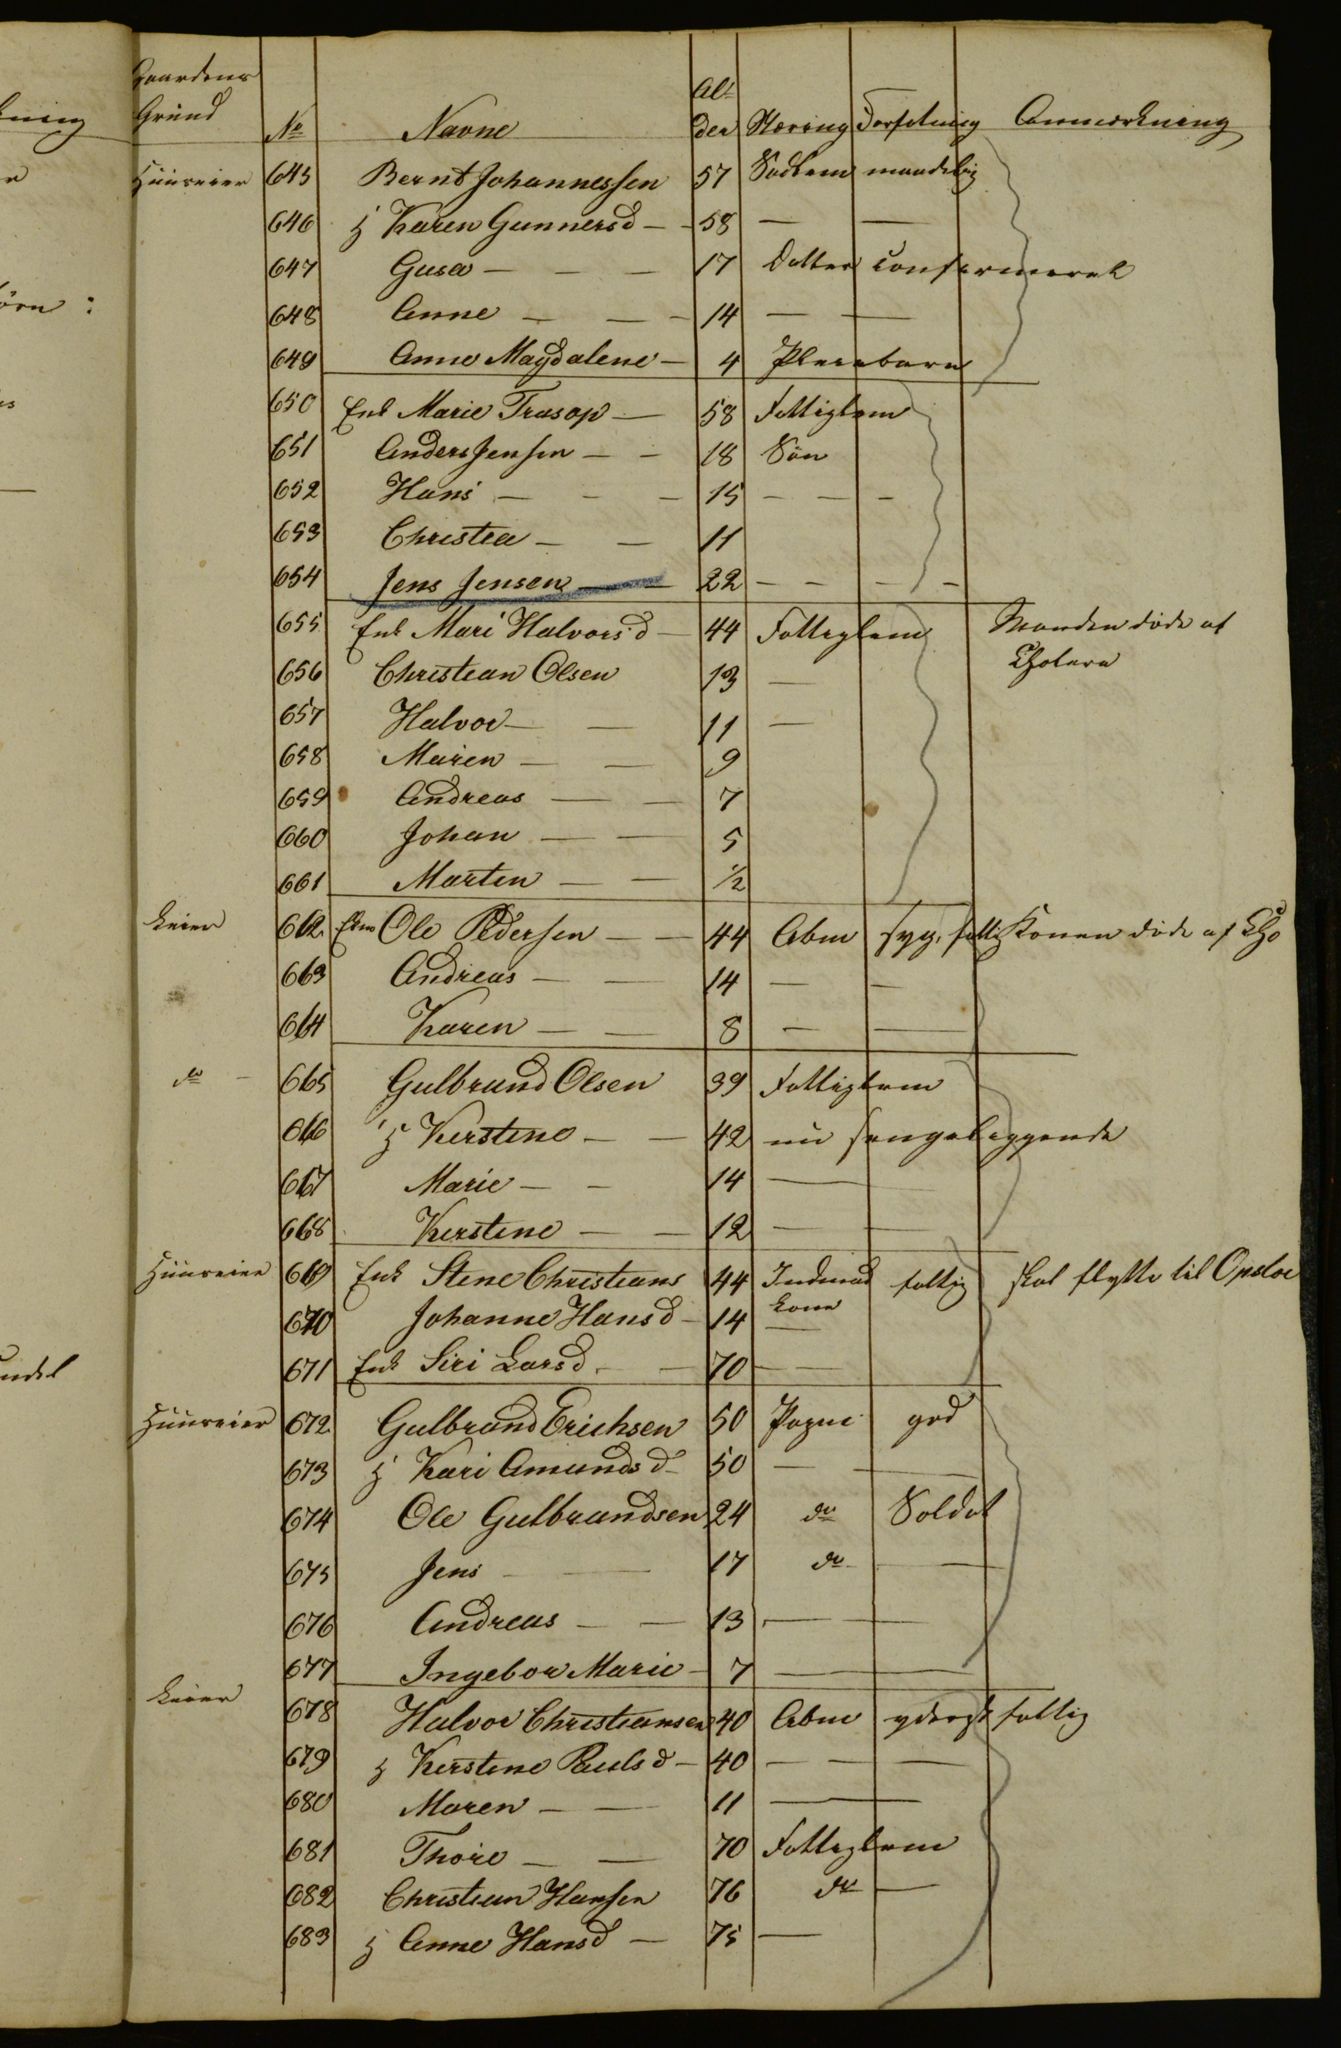 Gaardens
Grund № Navne Alder Næring Forfatning Anmærkning
Huuseier 645 Bernt Johannessen 57 maadelig
646 Karen Gunnersd — 58 — —
647 Gusa — — — 17 Datter confermeret
648 Anne — — — 14 — —
649 Anne Magdalene — 4 Pleiebarn
650 Enk Marie Trasop — 58 Fattiglem
651 Anders Jensen — — 18 Søn
652 Hans — — — 15 — — —
653 Christia — — 11
654 Jens Jensen — — 22 — — — —
655 Enk Mari Halvorsd — 44 Fattiglem Manden døde af
Cholera
656 Christian Olsen 13 —
657 Halvor — — 11 —
658 Maren — — 9
659 Andreas — — 7
660 Johan — — 5
661 Marten — — ½
Leier 662 Ole Pedersen — — 44 Abm syg, fattig Konen døde af Cho
663 Andreas — — 14 — —
664 Karen — — 8 — —
do — 665 Gulbrand Olsen 39 Fattiglem
666 Kerstine — — 42 nu sengeliggende
667 Marie — — 14 —
668 Kerstine — — 12 — —
Huuseier 669 Enk Stine Christians 44 fattig skal flytte til Opsloe
kone
670 Johanne Hansd — 14 —
671 Enk Siri Larsd. — — 70 — —
Huuseier 672 Gulbrand Erichsen 50 god
673 Kari Amundsd — 50 — —
674 Ole Gulbrandsen 24 do Soldat
675 Jens — — 17 do —
676 Andreas — — 13 — —
677 Ingebor Marie — 7 — —
Leier 678 Halvor Christiansen 40 Abm yderst fattig
679 Kerstine Paulsd — 40 — — —
680 Maren — — 11 — —
681 Thore — — 70 Fattiglem
682 Christian Hansen 76 do —
683 Anne Hansd — 75 —